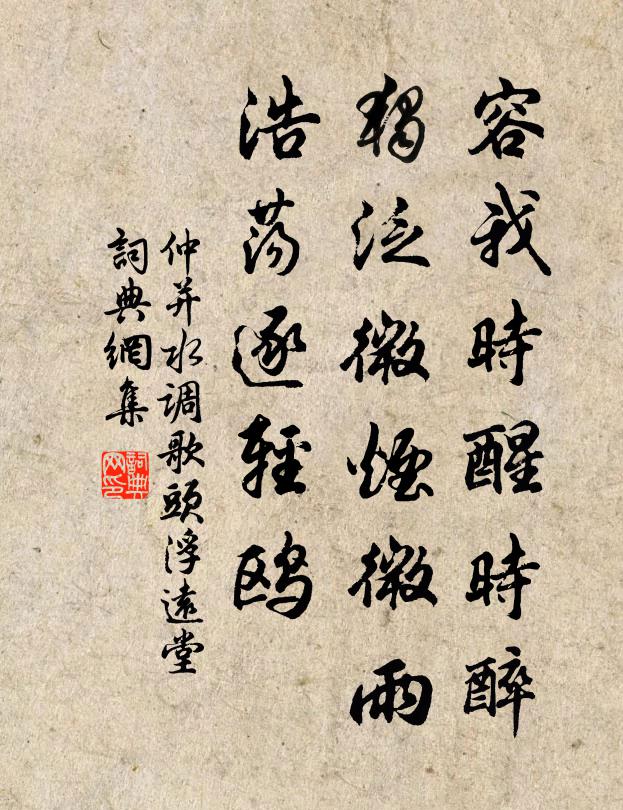 容我時醒時醉
獨泛微煙微雨
浩荡逐輕鸥
仲并水调歌頭浮遠堂
詞典網集
詞典
网印